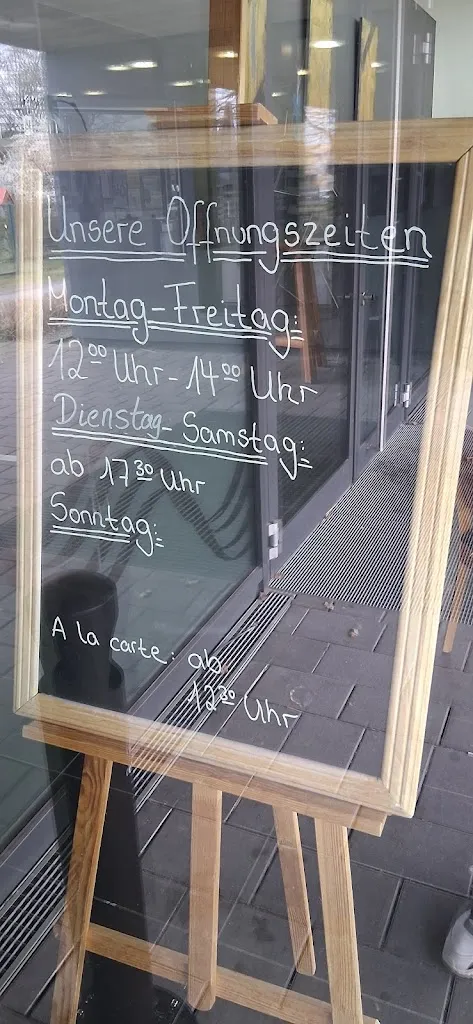 Unsere Öffnungszeiten
Montag-Freitag:
12⁰⁰ Uhr - 14⁰⁰ Uhr
Dienstag- Samstag:
ab 17³⁰ Uhr
Sonntag:
A la carte: ab
12³⁰ Uhr